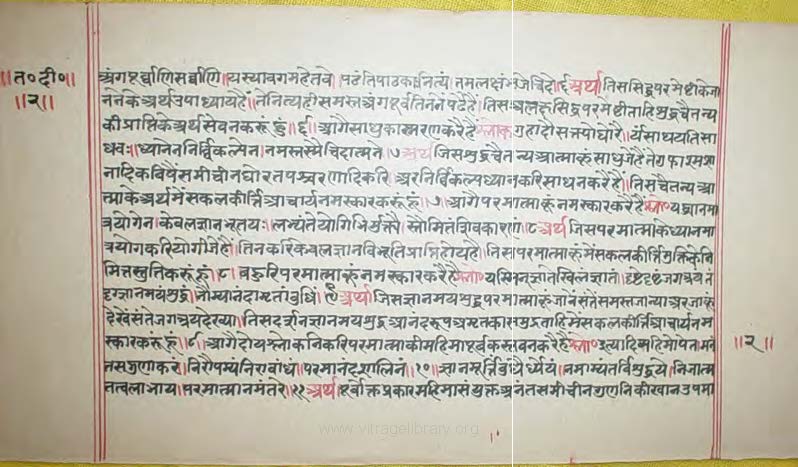 ॥त०दी०॥
॥२॥
अंगपूर्वाणिसर्वाणि॥यस्यावगमहेतवे।पठंतिपाठकानित्यं।नमलक्षं चिदो।६अर्थ॥तिससिद्धपरमेष्टीकेजा
ननेकेअर्थउपाध्यायहै॥तेनित्यहीसमस्तअंगपूर्वतिनंनपढेहै।तिसअलक्षसिद्धपरमेष्टीताहिशुद्धचैतन्य
कीप्राप्तिकेअर्थसेवनकरूंहूं॥६॥आगैसाधुकास्मरणकरैहैश्लोक॥गुहादौसत्तपोघोरै।र्यसाधयतिसा
धवः॥ध्यानेननिर्विकल्पेन।नमस्तस्मैचिदात्मने।७अर्थजिसशुद्धचैतन्यआत्माकूंसाधुजेहैंतेगुफाश्मशा
नादिकविषैंसमीचीनघोरतपश्चरणादिकरि।अरनिर्विकल्पध्यानकरिसाधनकरैहै॥तिसचैतन्यआ
त्माकेअर्थमेंसकलकीर्त्तिआचार्यनमस्कारकरूंहूं।७।आगैपरमात्माकूंनमस्कारकरैहैंश्लो०यध्यानमा
त्रयोगेन।केवलज्ञानभूतयः।लभ्यंतेयोगिभिर्मुक्त्यै।स्तौमितंशिवकारणं।८अर्थजिसपरमात्माकेध्यानमा
त्रयोगकरियोगीजेहै।तिनकरिकेवलज्ञानविभूतिप्राप्तिहोयहै॥तिसपरमात्माकूंमेंसकलकीर्त्तिमुक्तिकेनि
मित्तस्तुतिकरूंहूं।८।बहुरिपरमात्माकूंनमस्कारकरैहैश्लो०यस्मिन्ज्ञातेखिलंज्ञातं।दृष्टेदृष्टंजगत्त्रयंतं
दृग्ज्ञानमयंशुद्धं।नौम्यानंदामृतांबुधिं।९अर्थ।जिसज्ञानमयशुद्धपरमात्माकूंजानेसंतेसमस्तजान्याअरजाकूं
देखेंसंतेजगत्त्रयदेख्या।तिसदर्शनज्ञानमयशुद्धआनंदरूपअमृतकासमुद्रताहिमेंसकलकीर्त्तिआचार्यनम
स्कारकरूंहूं।९।आगेदोयश्लोकनिकरिपरमात्माकीमहिमापूर्वकस्तवनकरैहैश्लो०इत्यादिमहिमोपेत।मनं
तसगुणाकरं।निरौपम्यंनिराबाधं।परमानंदशालिनं।१०।ज्ञानमूर्त्तिंबुधैर्ध्येयं।नमाम्यतर्विशुद्धये।निजात्म
तत्वलाभाय।परमात्मानमंतरे।११अर्थ।पूर्वोक्तप्रकारमहिमासंयुक्तअनंतसमीचीनगुणनिकीखानउपमा
॥२॥
www.vitragelibrary.org